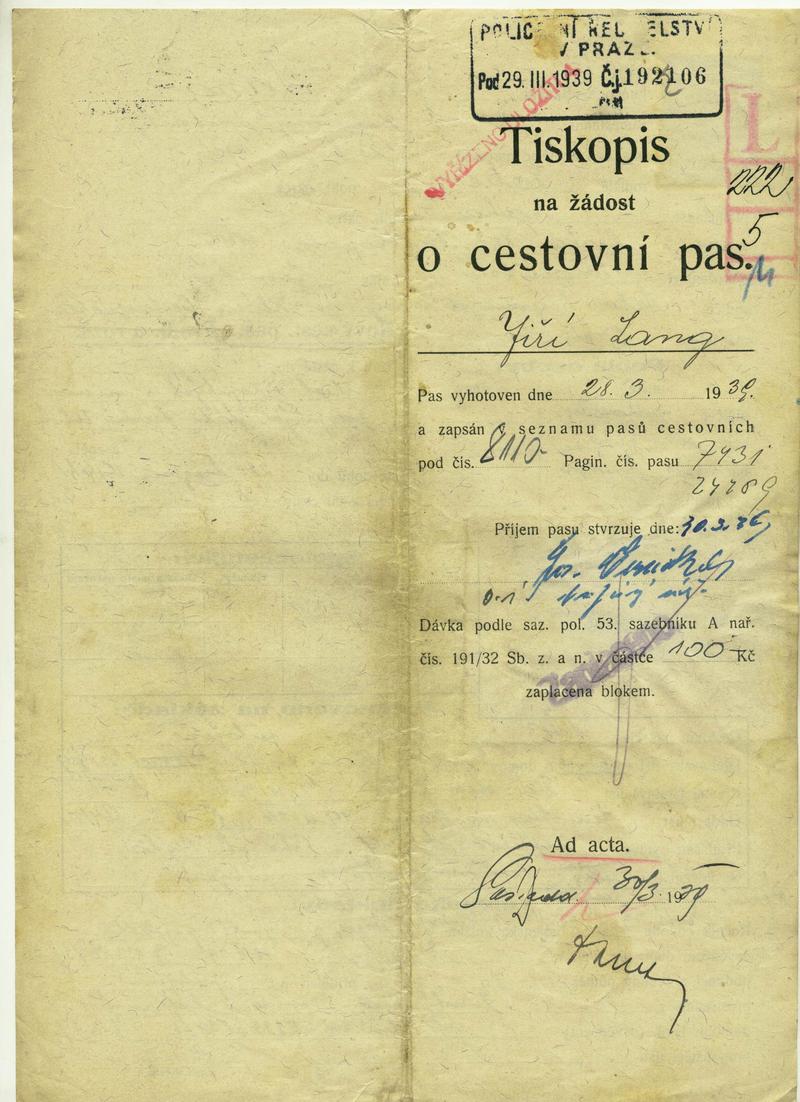 POLICEJNÍ ŘEDITELSTVÍ
V PRAZE
Pod 29.III.1939 Č.j. 192106
VYŘÍZENO ULOŽITI
L
Tiskopis
222
na žádost
5
o cestovní pas.
Jiří Lang
Pas vyhotoven dne 28. 3. 1939.
a zapsán v seznamu pasů cestovních
pod čís. 8110 Pagin. čís. pasu 7431
24789
Příjem pasu stvrzuje dne: 30.3.39
Dávka podle saz. pol. 53. sazebníku A nař.
čís. 191/32 Sb. z. a n. v částce 100 Kč
zaplacena blokem.
Ad acta.
30/3 1939